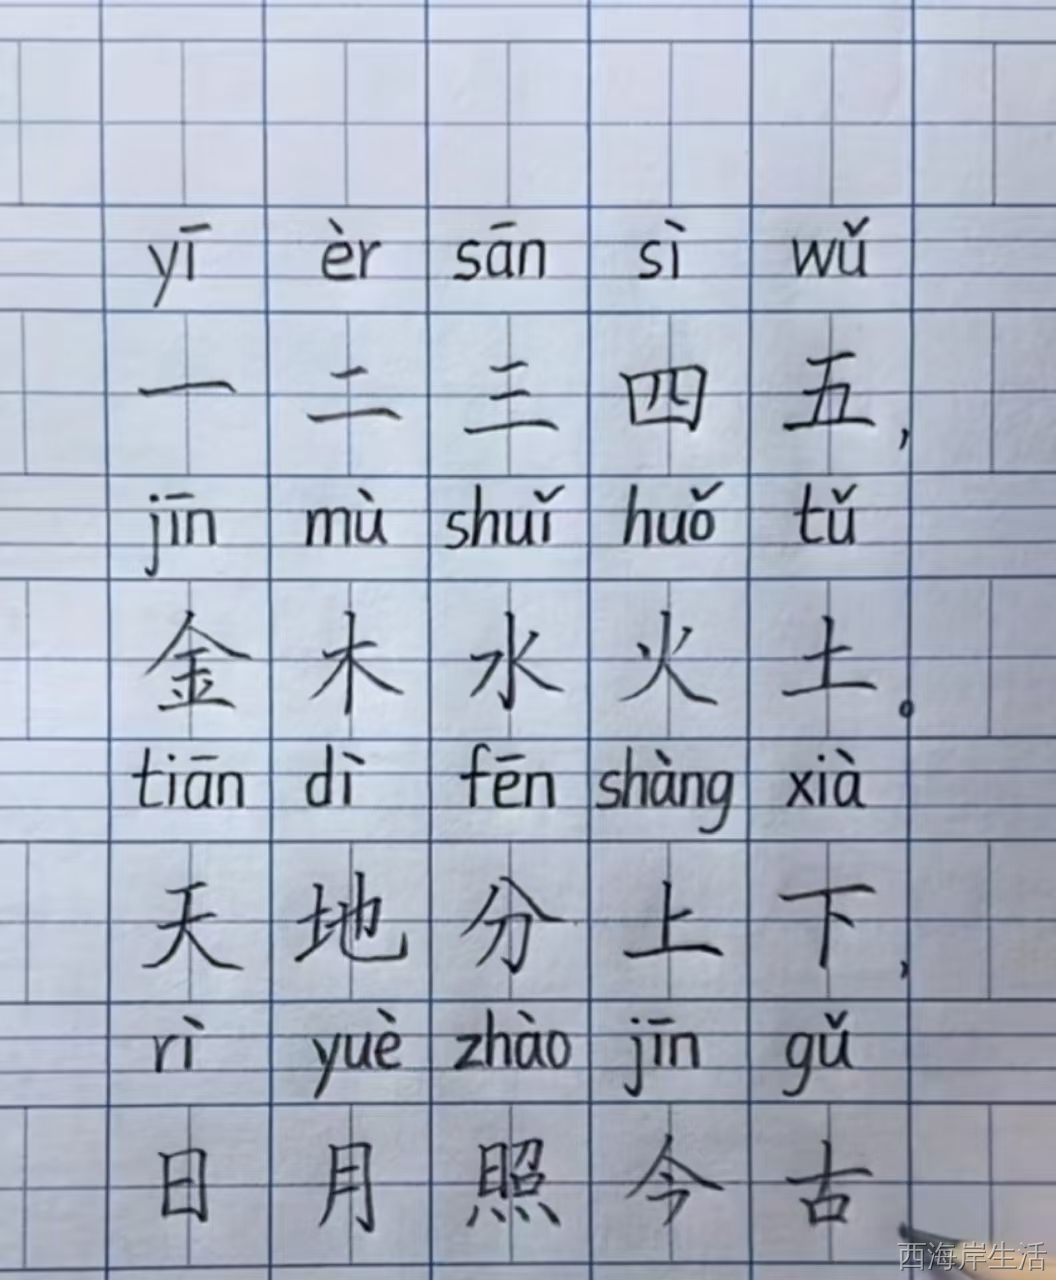 yī èr sān sì wǔ
一二三四五，
jīn mù shuǐ huǒ tǔ
金木水火土。
tiān dì fēn shàng xià
天地分上下，
rì yuè zhào jīn gǔ
日月照今古
西海岸生活